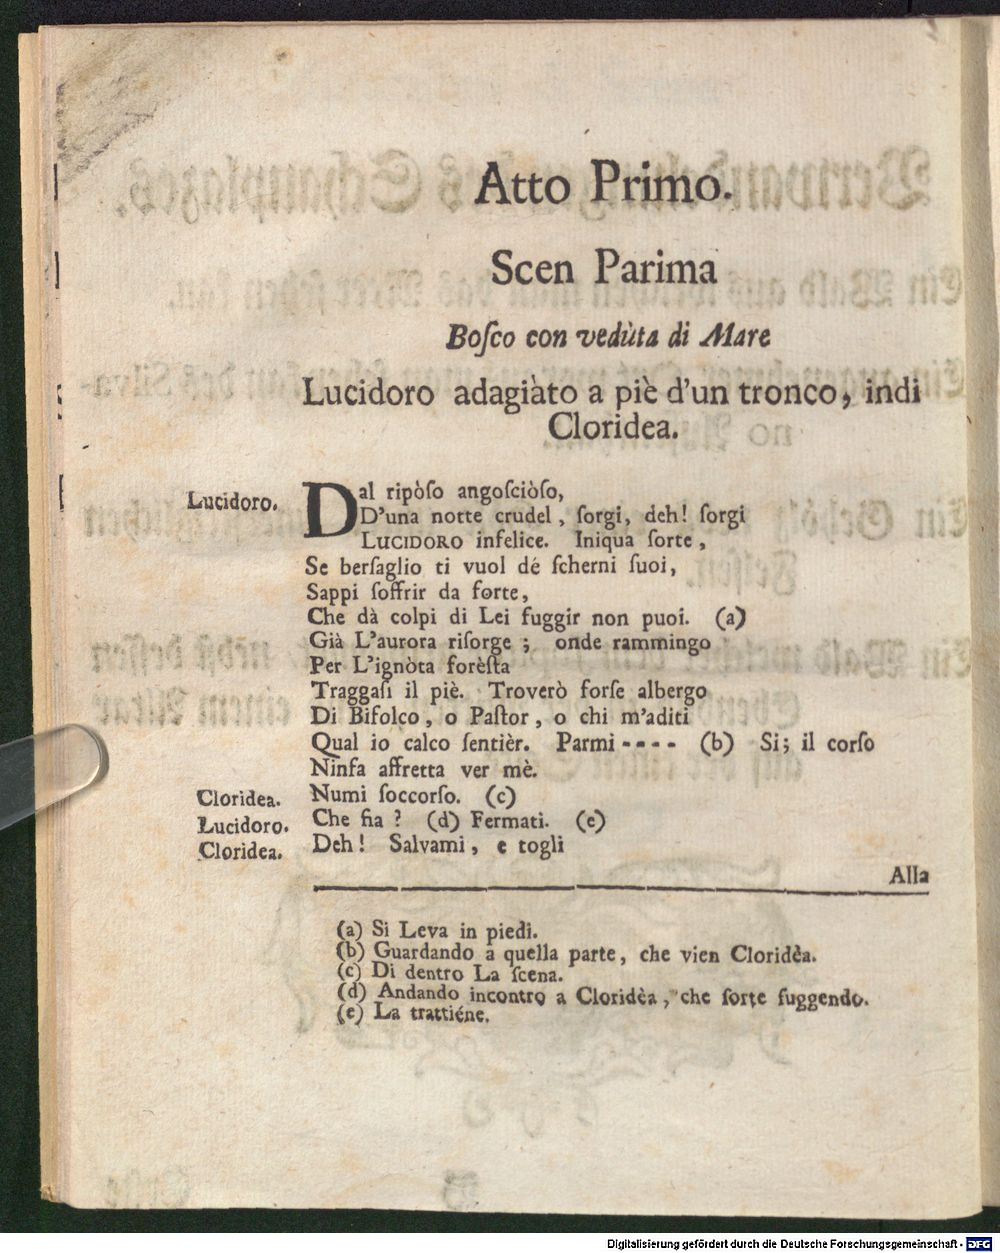 Atto Primo.
Scen Parima
Boſco con vedùta di Mare
Lucidoro adagiàto a piè d'un tronco, indi
Cloridea.
Lucidoro. Dal ripòſo angoſciòſo,
D'una notte crudel, ſorgi, deh! ſorgi
LUCIDORO infelice. Iniqua ſorte,
Se berſaglio ti vuol dé ſcherni ſuoi,
Sappi ſoffrir da forte,
Che dà colpi di Lei fuggir non puoi. (a)
Già L'aurora riſorge; onde rammingo
Per L'ignòta forèſta
Traggaſi il piè. Troverò forſe albergo
Di Bifolco, o Paſtor, o chi m'aditi
Qual io calco ſentièr. Parmi---- (b) Si; il corſo
Ninfa affretta ver mè.
Cloridea. Numi ſoccorſo. (c)
Lucidoro. Che fia? (d) Fermati. (e)
Cloridea. Deh! Salvami, e togli
Alla
(a) Si Leva in piedi.
(b) Guardando a quella parte, che vien Cloridèa.
(c) Di dentro La ſcena.
(d) Andando incontro a Cloridèa, che ſorte fuggendo.
(e) La trattiéne.
Digitalisierung gefördert durch die Deutsche Forschungsgemeinschaft - DFG